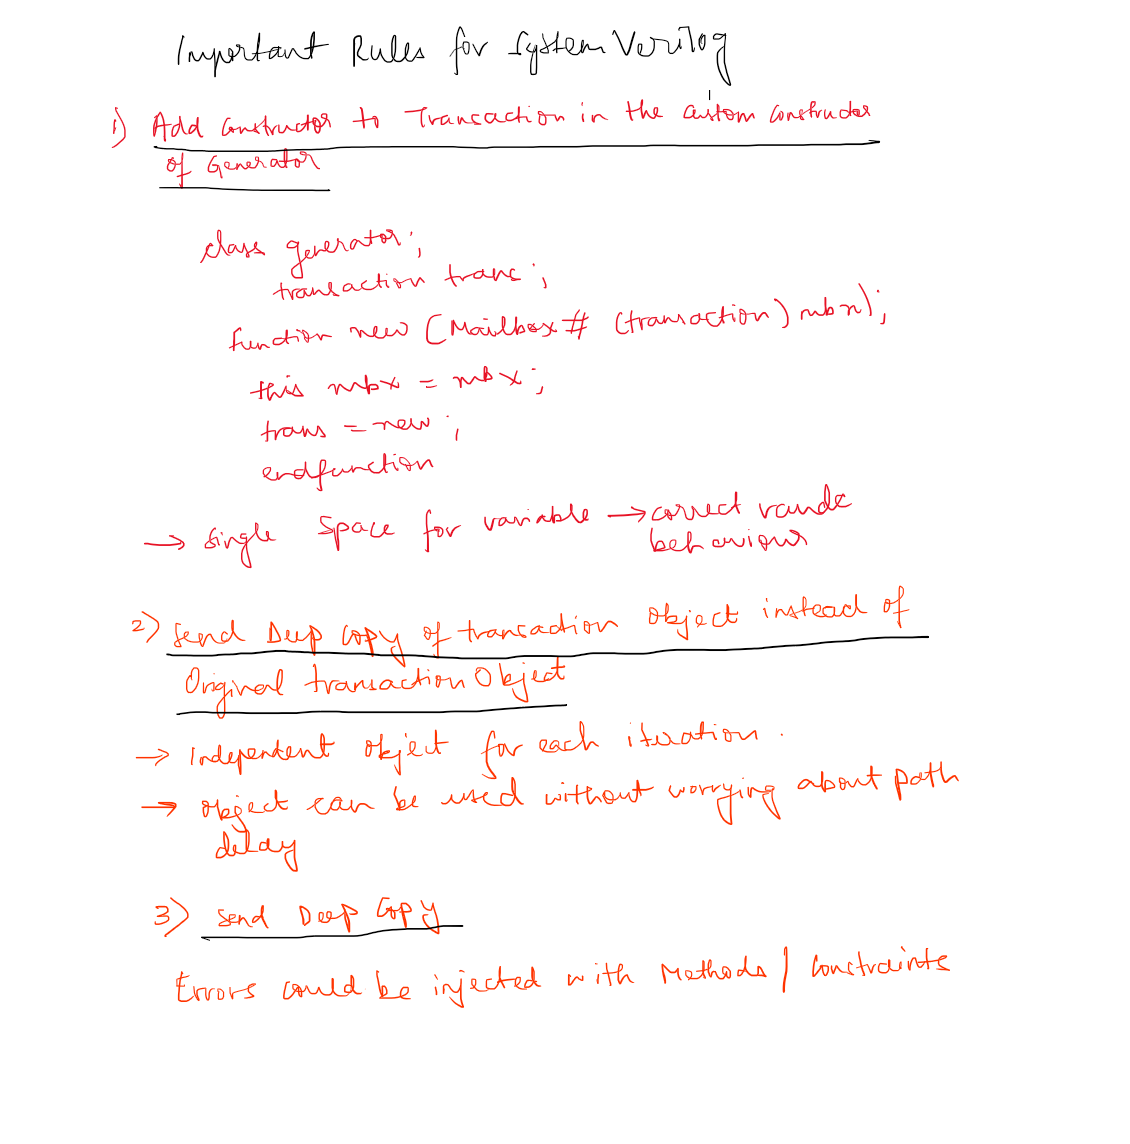 Important Rules for System Verilog
1) Add Constructor to Transaction in the custom constructor
of Generator
class generator;
transaction trans;
function new (Mailbox # (transaction) mbx);
this mbx = mbx;
trans = new;
endfunction
→ Single Space for variable → correct randc
behaviour
2) Send Deep Copy of transaction Object instead of
Original transaction Object
→ Independent Object for each iteration.
→ Object can be used without worrying about path
delay
3) Send Deep Copy
Errors could be injected with Methods / Constraints